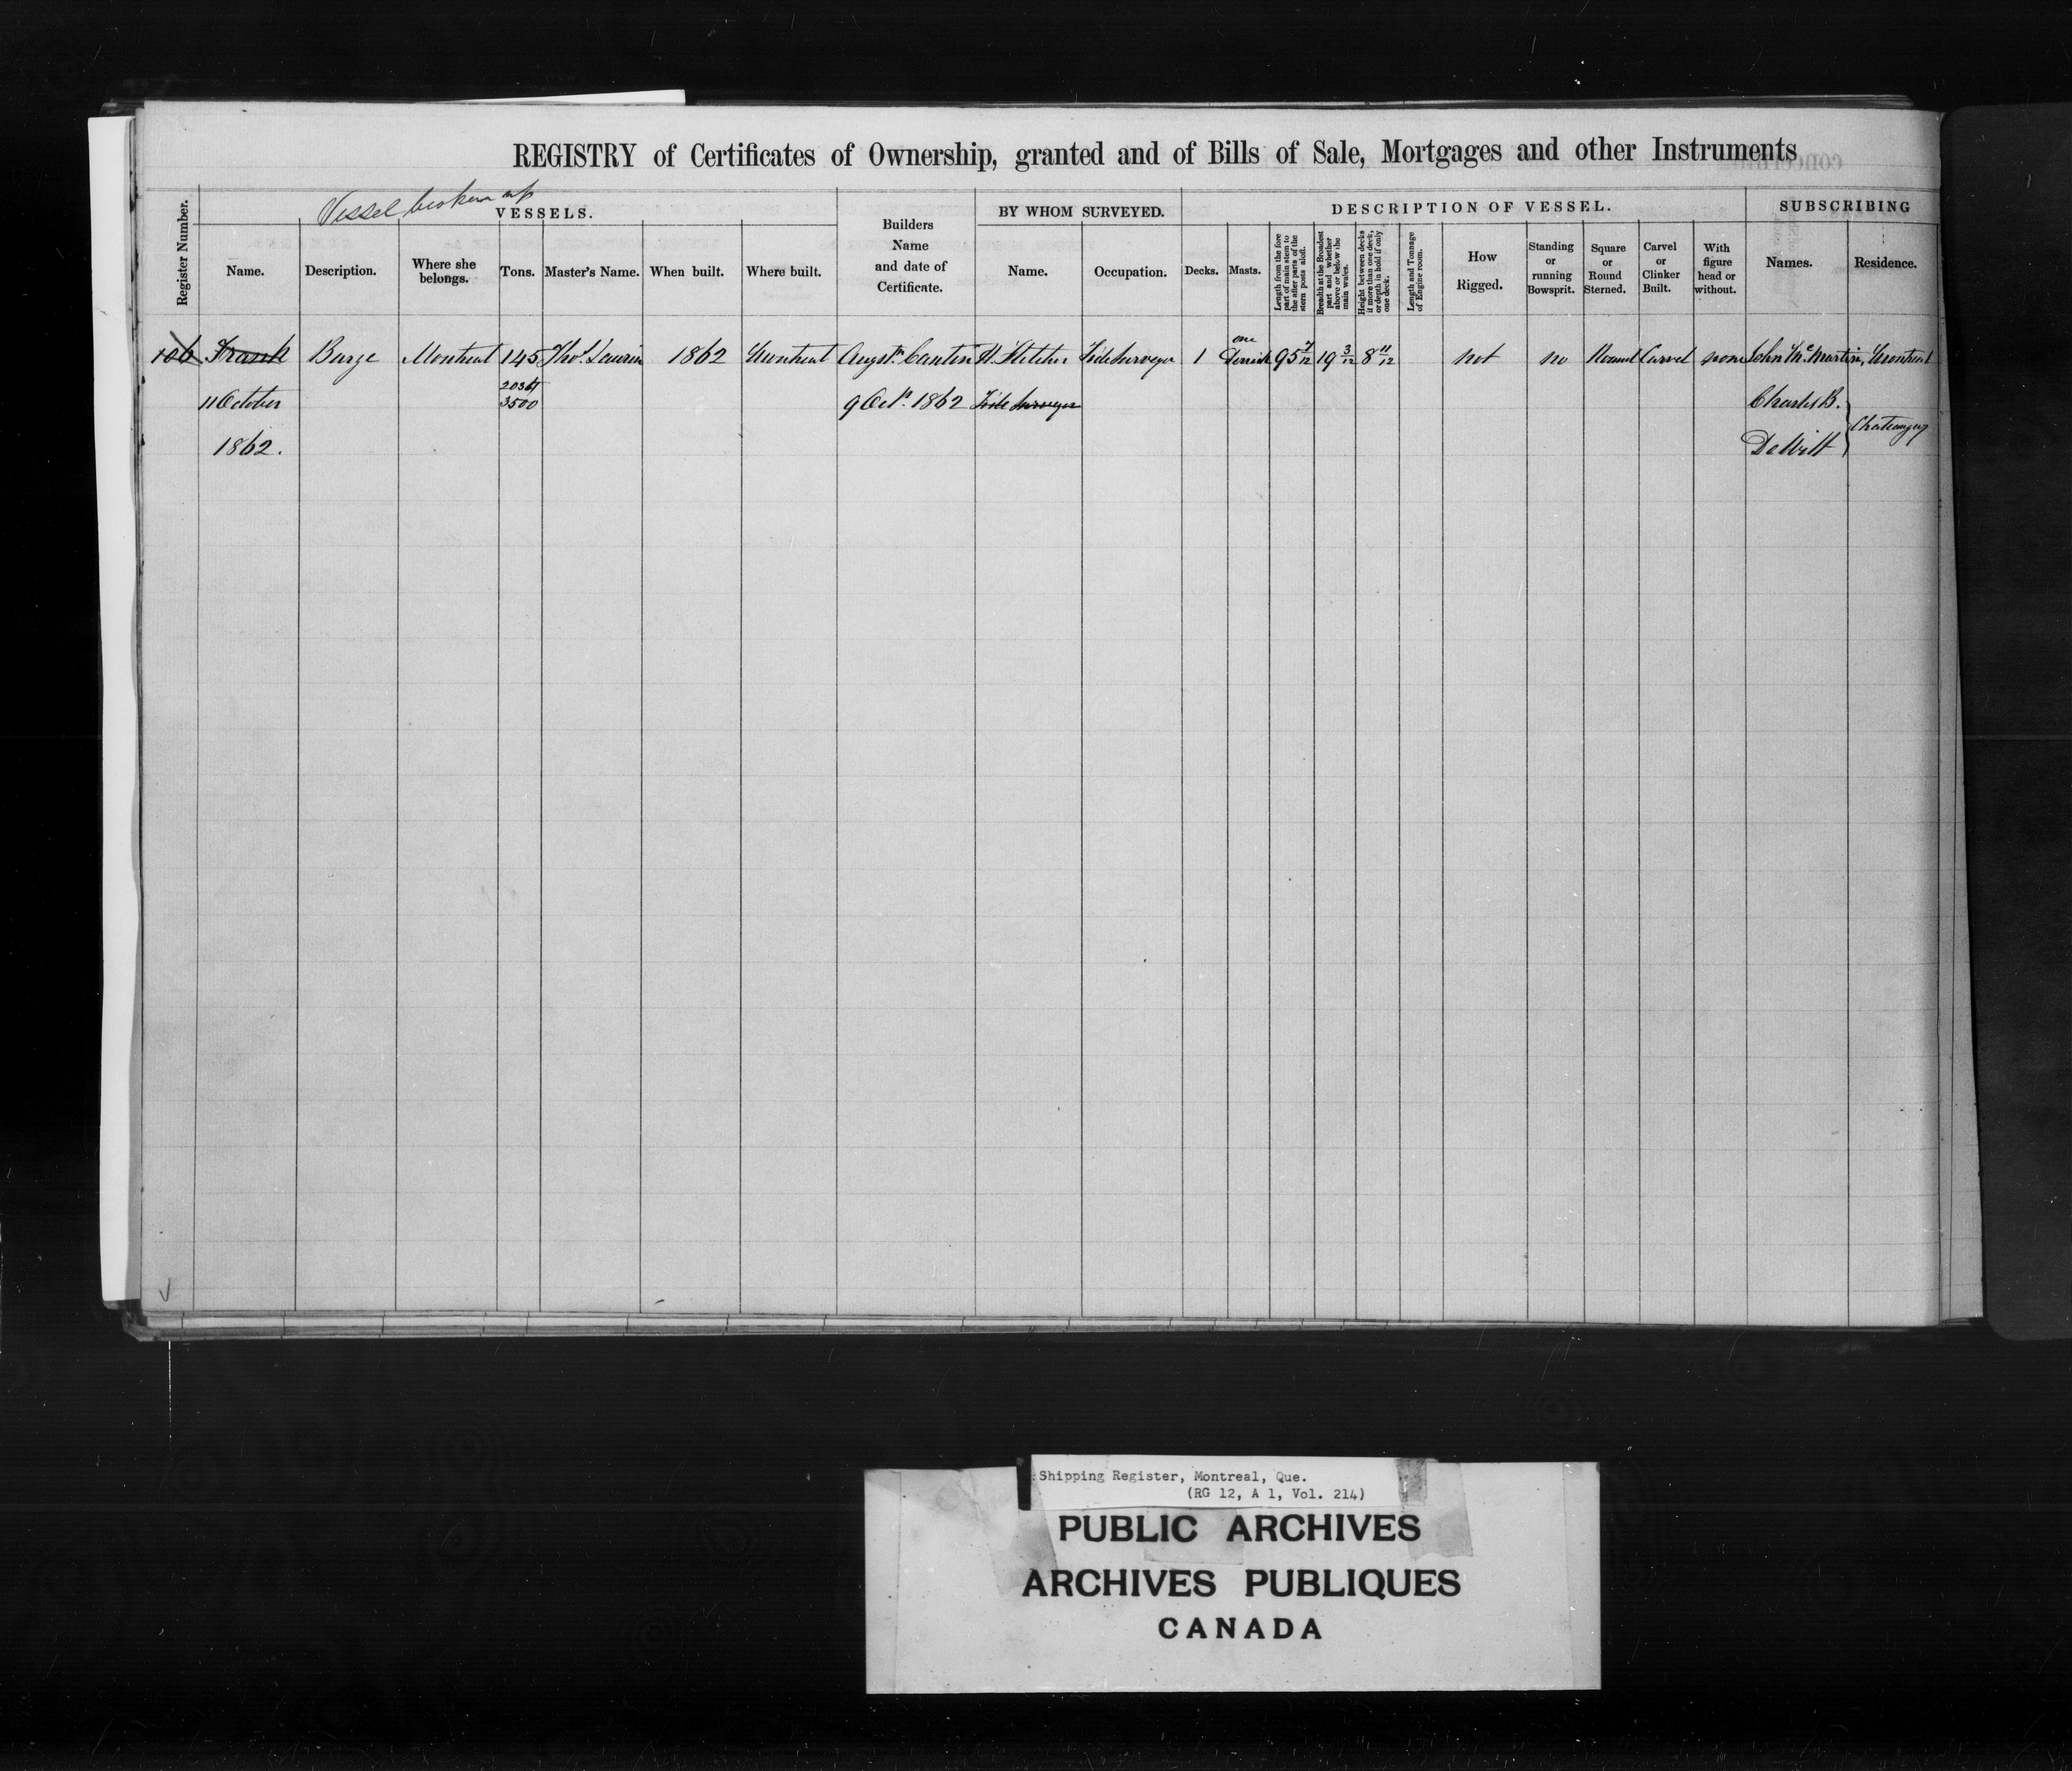 REGISTRY of Certificates of Ownership, granted and of Bills of Sale, Mortgages and other Instruments
Vessel broken up
Register Number.
VESSELS.
Name.
Description.
Where she belongs.
Tons.
Master's Name.
When built.
Where built.
Builders Name and date of Certificate.
BY WHOM SURVEYED.
Name.
Occupation.
DESCRIPTION OF VESSEL.
Decks.
Masts.
Length from the fore part of main stem to the after parts of the stern posts aloft.
Breadth at the Broadest part and whether above or below the main wales.
Height between decks if more than one deck, or depth in hold if only one deck.
Length and Tonnage of Engine room.
How Rigged.
Standing or running Bowsprit.
Square or Round Sterned.
Carvel or Clinker Built.
With figure head or without.
SUBSCRIBING
Names.
Residence.
106 Frank Barge Montreal 145 Thos. Laurin 1862 Montreal Augstn. Cantin H. Fletcher Tide Surveyor 1 one Derrick 95 7/12 19 3/12 8 11/12 not no Round Carvel none John McMartin, Montreal
11 October 3500 9 Octr. 1862 Tide Surveyor Charles B.
1862. DeWitt
Shipping Register, Montreal, Que.
(RG 12, A 1, Vol. 214)
PUBLIC ARCHIVES
ARCHIVES PUBLIQUES
CANADA